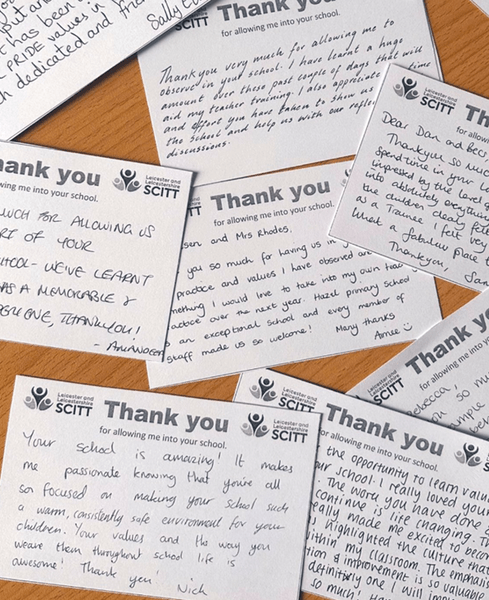 put
t has been
PRIDE values in
h dedicated and
Sally
SCITT
Thank you
for allowing me into your school.
Thank you very much for allowing me to
observe in your school. I have learnt a huge
amount over these past couple of days that will
aid my teacher training. I also appreciate the time
and effort you have taken to show us
the school and help us with our reflective
discussions.
Leicester and
Leicestershire
SCITT
Th
for
Dear Dan and Becs,
Thankyou so much
spend time in your
impressed by the level of
into absolutely everything
the children clearly
as a Trainee I felt very
What a fabulous place t
Thankyou,
hank you
owing me into your school.
Leicester and
Leicestershire
SCITT
UCH FOR ALLOWING US
RT OF YOUR
CHOOL - WE'VE LEARNT
AS A MEMORABLE &
ONE, THANKYOU!
TT
Thank you
for allowing me into your school.
sen and Mrs Rhodes,
you so much for having us in
practice and values I have observed are
mething I would love to take into my own teaching
actice over the next year. Hazel primary school
an exceptional school and every member of
staff made us so welcome! Many thanks
Aimee
Leicester and
Leicestershire
SCITT
Thank you
for allowing me into your school.
Leicester and
Leicestershire
SCITT
Your school is amazing! It makes
me passionate knowing that you're all
so focused on making your school such
a warm, consistently safe environment for your
children. Your values and the way you
weave them throughout school life is
awesome! Thank you
Nick
SCITT
Thank yo
for allowing me into your
ebecca,
on so mu
ample
Leicester and
Leicestershire
SCITT
Thank you
for allowing me into your school.
SC
the opportunity to learn valu
ur school. I really loved your
The work you have done a
continue is life changing. Th
eally made me excited to becom
highlighted the culture that
ithin my classroom. The emphasis
tion & improvement is so valuable
definitely one I will impl
so much!